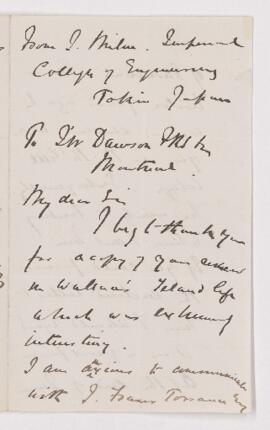 From J. Milne. Imperial
College of Engineering
Tokio Japan
To J W Dawson FRS
Montreal
My dear Sir
I beg to thank you
for a copy of your review
on Wallace's Island life
which was extremely
interesting.
I am anxious to communicate
with J. Fraser Torrance Esq